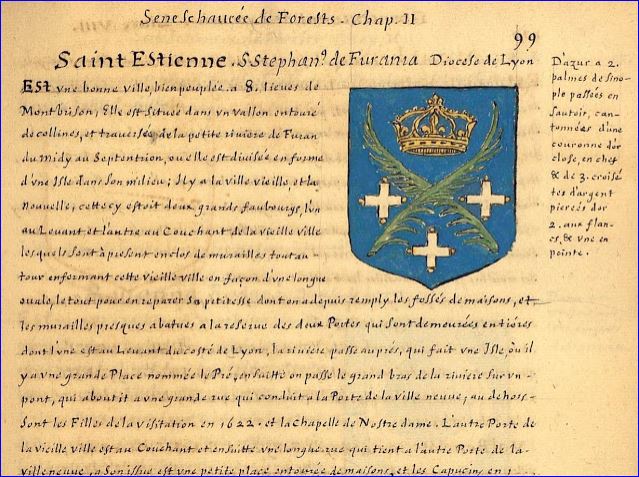 Seneschaucée de Forests. Chap. II
99
Saint Estienne. S. Stephan9. de Furania Diocese de Lyon
Est vne bonne ville, bien peuplée a 8. lieues de
Montbrison, Elle est située dans vn vallon entouré
de collines, et traversée de la petite riviere de Furan
du Midy au Septentrion, ou elle est divisée en forme
d'vne Isle dans son milieu; Il y a la ville vieille, et la
Nouvelle, cette cy estoit deux grands fauxbourgs, l'vn
au Levant et l'autre au Couchant de la vieille ville
lesquels sont à present enclos de murailles tout au-
tour enfermant cette vieille ville en façon d'vne longue
ouale, le tout pour en reparer sa petitesse dont on a depuis remply les fossés de maisons, et
les murailles presques abatues a la reserve des deux Portes qui sont demeurées entiéres
dont l'vne est au Levant du costé de Lyon, la riviere passe auprés, qui fait vne Isle, où il
y a vne grande Place nommée le Pré, ensuitte on passe le grand bras de la riviere sur vn
pont, qui aboutit a vne grande rue qui conduit a la Porte de la ville neuve; au dehors
sont les Filles de la Visitation en 1622. et la Chapelle de Nostre dame. L'autre Porte de
la vieille ville est au Couchant et ensuitte vne longue rue qui tient a l'autre Porte de la
ville neuve, a son issue est vne petite place entourée de maisons, et les Capucins en 1
D'azur a 2.
palmes de sino-
ple passées en
sautoir, can-
tonnées d'une
couronne d'or
close, en chef
& de 3. croise-
tes d'argent
pierces d'or
2. aux flan-
cs, & vne en
pointe.